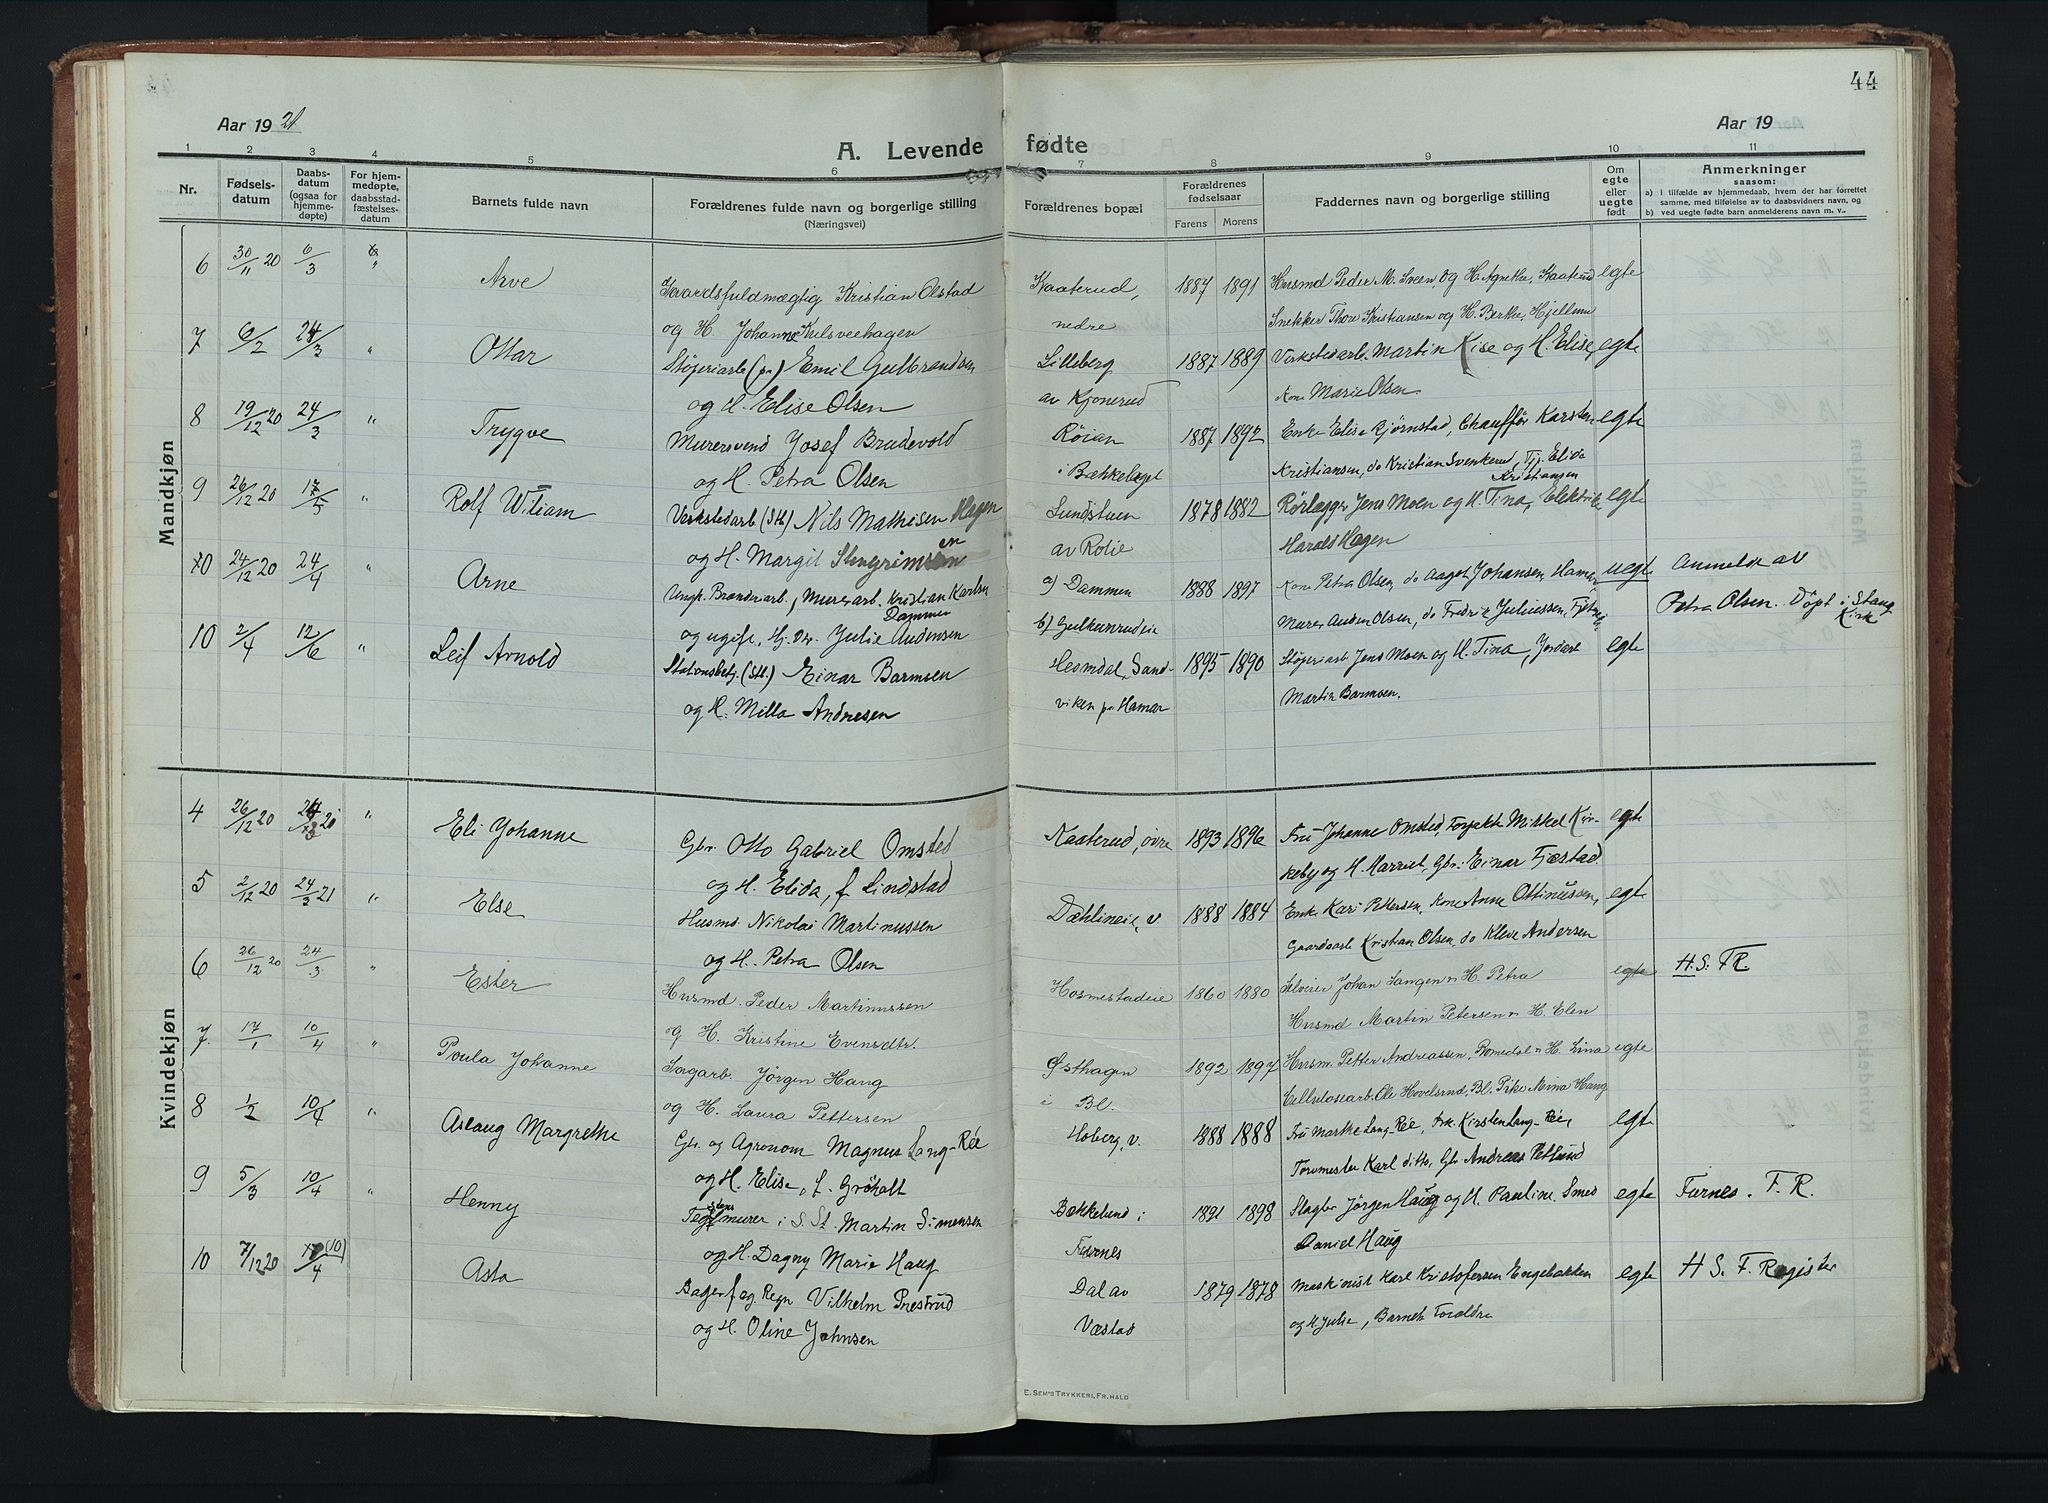 44
Aar 1921
Aar 19
A. Levende fødte
1 2 3 4 5 6 7 8 9 10 11
Nr.
Fødsels-
datum
Daabs-
datum
(ogsaa for
hjemme-
døpte)
For hjem-
medøpte,
daabsstad-
fæstelses-
datum
Barnets fulde navn
Forældrenes fulde navn og borgerlige stilling
(Næringsvei)
Forældrenes bopæl
Forældrenes
fødselsaar
Farens Morens
Faddernes navn og borgerlige stilling
Om
egte
eller
uegte
født
Anmerkninger
saasom:
a) i tilfælde av hjemmedaab, hvem der har forrettet
samme, med tilføielse av to daabsvidners navn, og
b) ved uegte fødte barn anmelderens navn m. v..
Mandkjøn
6 30/11 20 6/3 " Arve Gaardsfuldmægtig Kristian Olstad Kaaterud, 1887 1891 Husmd Peder M. Sveen, og H. Agnethe, Kaaterud egte
og H. Johanne nedre Snekker Thore Kristiansen og H. Berthe, Hjellum
7 6/2 24/3 " Ottar Støperiarb (pa) Emil Gulbrandsen Lilleberg 1887 1889 Verkstedarb. Martin Kise og H. Elise, egte
og H. Elise Olsen av Kjonerud Kone Marie Olsen
8 19/12 20 24/3 " Trygve Murersvend Josef Brudevold Røian 1887 1892 Enke Elise Bjørnstad, Chauffør Karsten egte
og H. Petra Olsen i Bækkelaget Kristiansen, do Kristian Svenkerud, Tj. Elida
Kristiansen
9 26/12 20 17/5 " Rolf Wiliam Verkstedarb (Stb) Nils Mathisen Hagen Lundstuen 1878 1882 Rørlægger Jens Moen og H. Tina, Elektrik egte
og H. Margit av Rolie Harald Hagen
10 24/12 20 24/4 " Arne Ungk. Brænderiarb., Murerarb. Kristian Karlsen a) Dammen 1888 1897 Kone Petra Olsen, do Aagot Johansen, Hamar uegt Anmeldt av
Dammen
og ugift, Tj. Julie Andersen b) Gulkunrudeie Murer Anders Olsen, do Fredrik Juliussen, Petra Olsen. Døpt i Stange
Kirk
10 2/4 12/6 " Leif Arnold Stationsbetj. (Stb.) Einar Barmoen Heimdal, Sand- 1895 1890 Støperiarb Jens Moen og H. Tina, Jordarb egte
og H. Milla Andresen viken pr Hamar Martin Barmoen.
Kvindekjøn
4 26/12 20 " Eli Johanne Gbr. Otto Gabriel Omsted Kaaterud, øvre 1893 1896 Fru Johanne Omsted, Forpakter Mikkel Kir- egte
og H. Elida, f Lindstad keby og H. Marriet, Gbr. Einar Fjæstad.
5 2/12 20 24/3 21 " Else Husmd Nikolai Martinussen Dæhlineie, v 1888 1884 Enke Kari Pettersen, Kone Anne Ottinusen, egte
og H. Petra Olsen Gaardsarb Kristian Olsen, do Kleve Andersen
6 26/12 20 24/3 " Ester Husmd. Peder Martinussen Hosmestadeie 1860 1880 Johan Langen og H. Petra egte H. S. F R.
og H. Kristine Evensdtr. Husmd Martin Petersen og H. Elen
7. 17/1 10/4 " Poula Johanne Sagarb. Jørgen Haug Østhagen 1892 1897 Husm. Petter Andreassen, Romedal og H. Lina egte
og H. Laura Pettersen i Bl. Cellulosearb. Ole Hovelsrud, Bl. Pike Mina Haug
8 1/2 10/4 " Aslaug Margrethe Gbr. og Agronom Magnus Lang-Rée Hoberg, v. 1888 1888 Fru Marthe Lang-Rée, Frk. Kirsten Lang-Rée, egte
og H. Elise, f. Grøholt Torvmester Karl ditto, Gbr Andreas Petlund
9 5/3 10/4 " Henny Teglstensmurer i S. St. Martin Simensen Bækkelund i 1891 1898 Slagter Jørgen Haug og H. Pauline. Smed egte Furnes. F. R.
og H. Dagny Marie Haug Furnes Daniel Haug
10 7/12 20 17/4 (10) Asta Bagerf. og Regn Vilhelm Prestrud Dal av 1879 1878 Maskinist Karl Kristofersen Engebakken egte H S. F. Register
og H. Oline Johnsen Væstad og H. Julie, Barnets Forældre
E. SEM'S TRYKKERI, FR.HALD